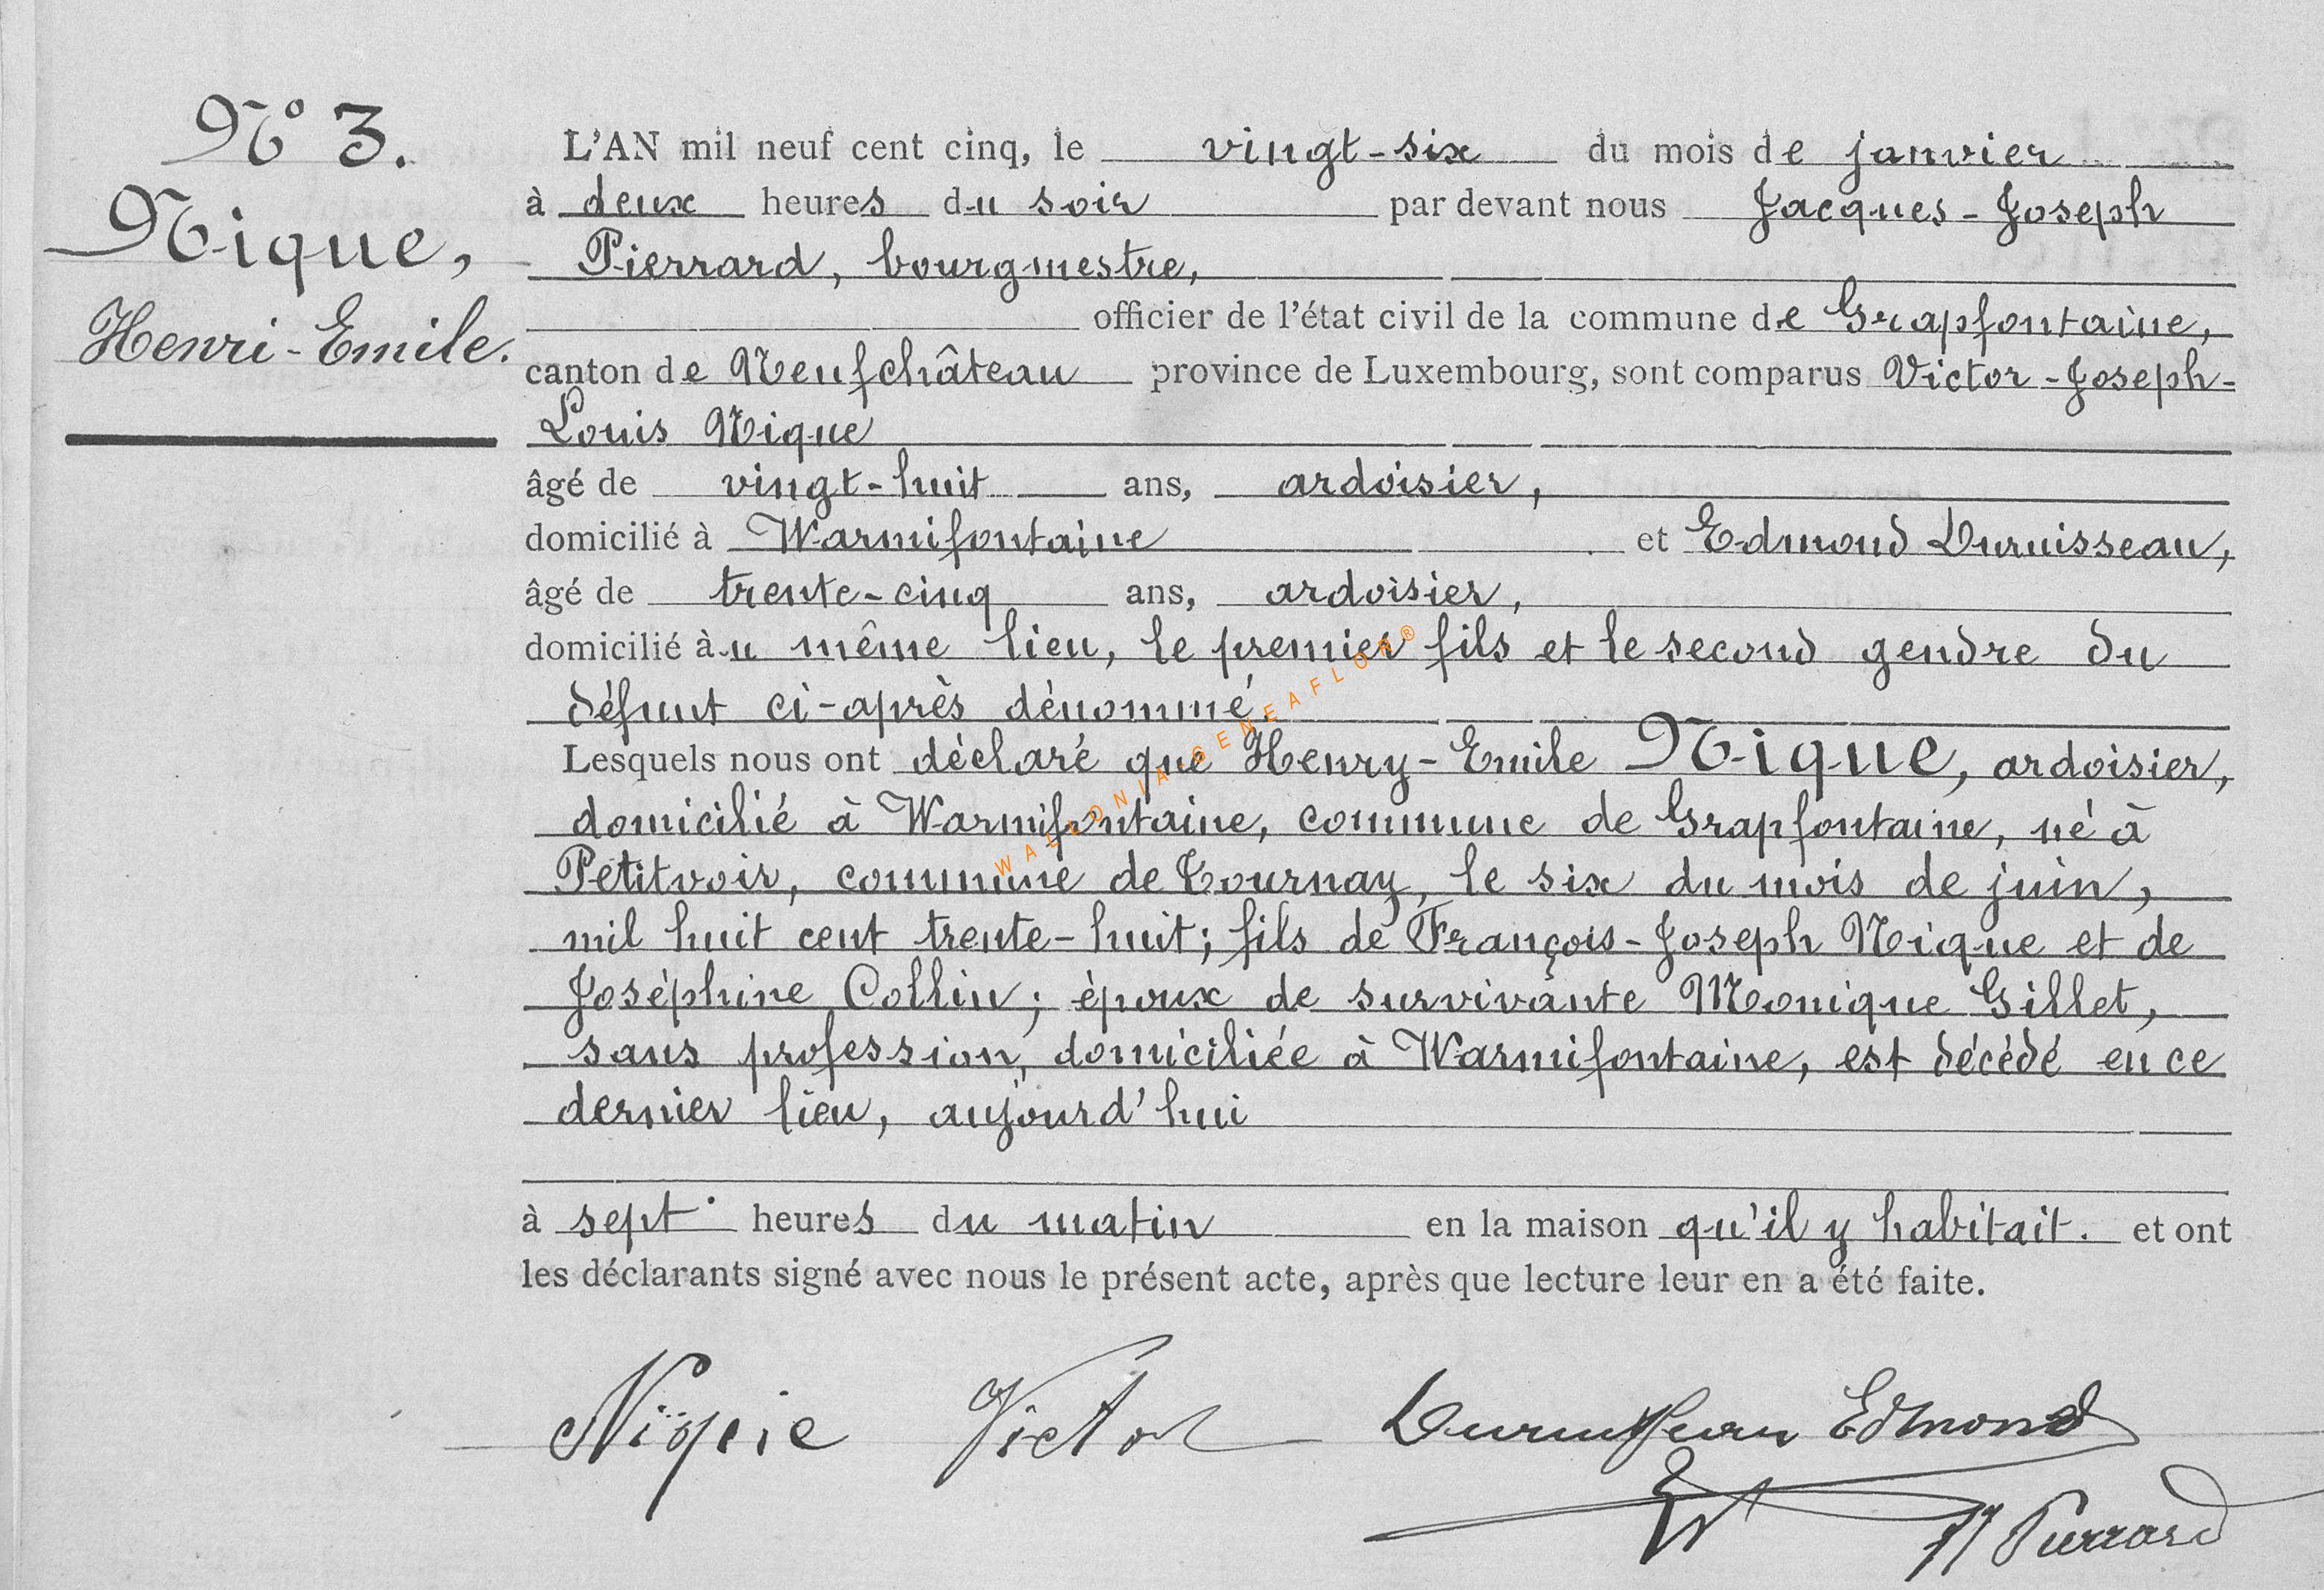 N° 3.
Nique,
Henri-Emile.
L'AN mil neuf cent cinq, le vingt-six du mois de janvier
à deux heures du soir par devant nous Jacques-Joseph
Pierrard, bourgmestre,
officier de l'état civil de la commune de Grapfontaine,
canton de Neufchâteau province de Luxembourg, sont comparus Victor-Joseph-
Louis Nique
âgé de vingt-huit ans, ardoisier,
domicilié à Warmifontaine et Edmond Duruisseau,
âgé de trente-cinq ans, ardoisier,
domicilié au même lieu, le premier fils et le second gendre du
défunt ci-après dénommé
Lesquels nous ont déclaré que Henry-Emile Nique, ardoisier,
domicilié à Warmifontaine, commune de Grapfontaine, né à
Petitvoir, commune de Tournay, le six du mois de juin,
mil huit cent trente-huit; fils de François-Joseph Nique et de
Joséphine Collin; époux de survivante Monique Gillet,
sans profession, domiciliée à Warmifontaine, est décédé en ce
dernier lieu, aujourd'hui
à sept heures du matin en la maison qu'il y habitait. et ont
les déclarants signé avec nous le présent acte, après que lecture leur en a été faite.
Nique Victor Duruisseau Edmond
JJ Pierrard
WALLONIA-GENEAFLOR®